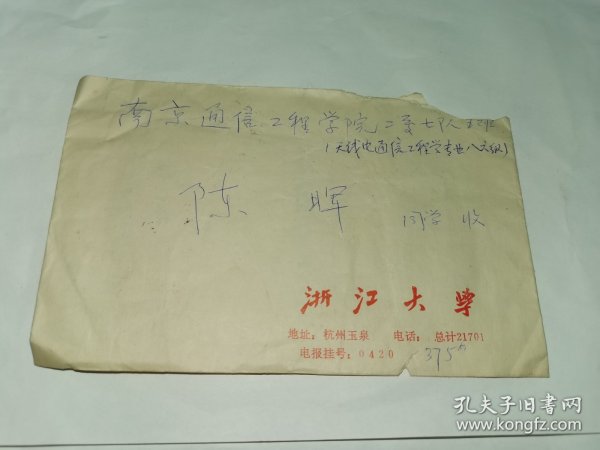 南京通信工程学院二系七队五班
(无线电通信工程学专业八六级)
陈 晖 同学 收
浙江大学
地址：杭州玉泉 电话：总计21701
电报挂号：0420
孔夫子旧书网
www.kongfz.com